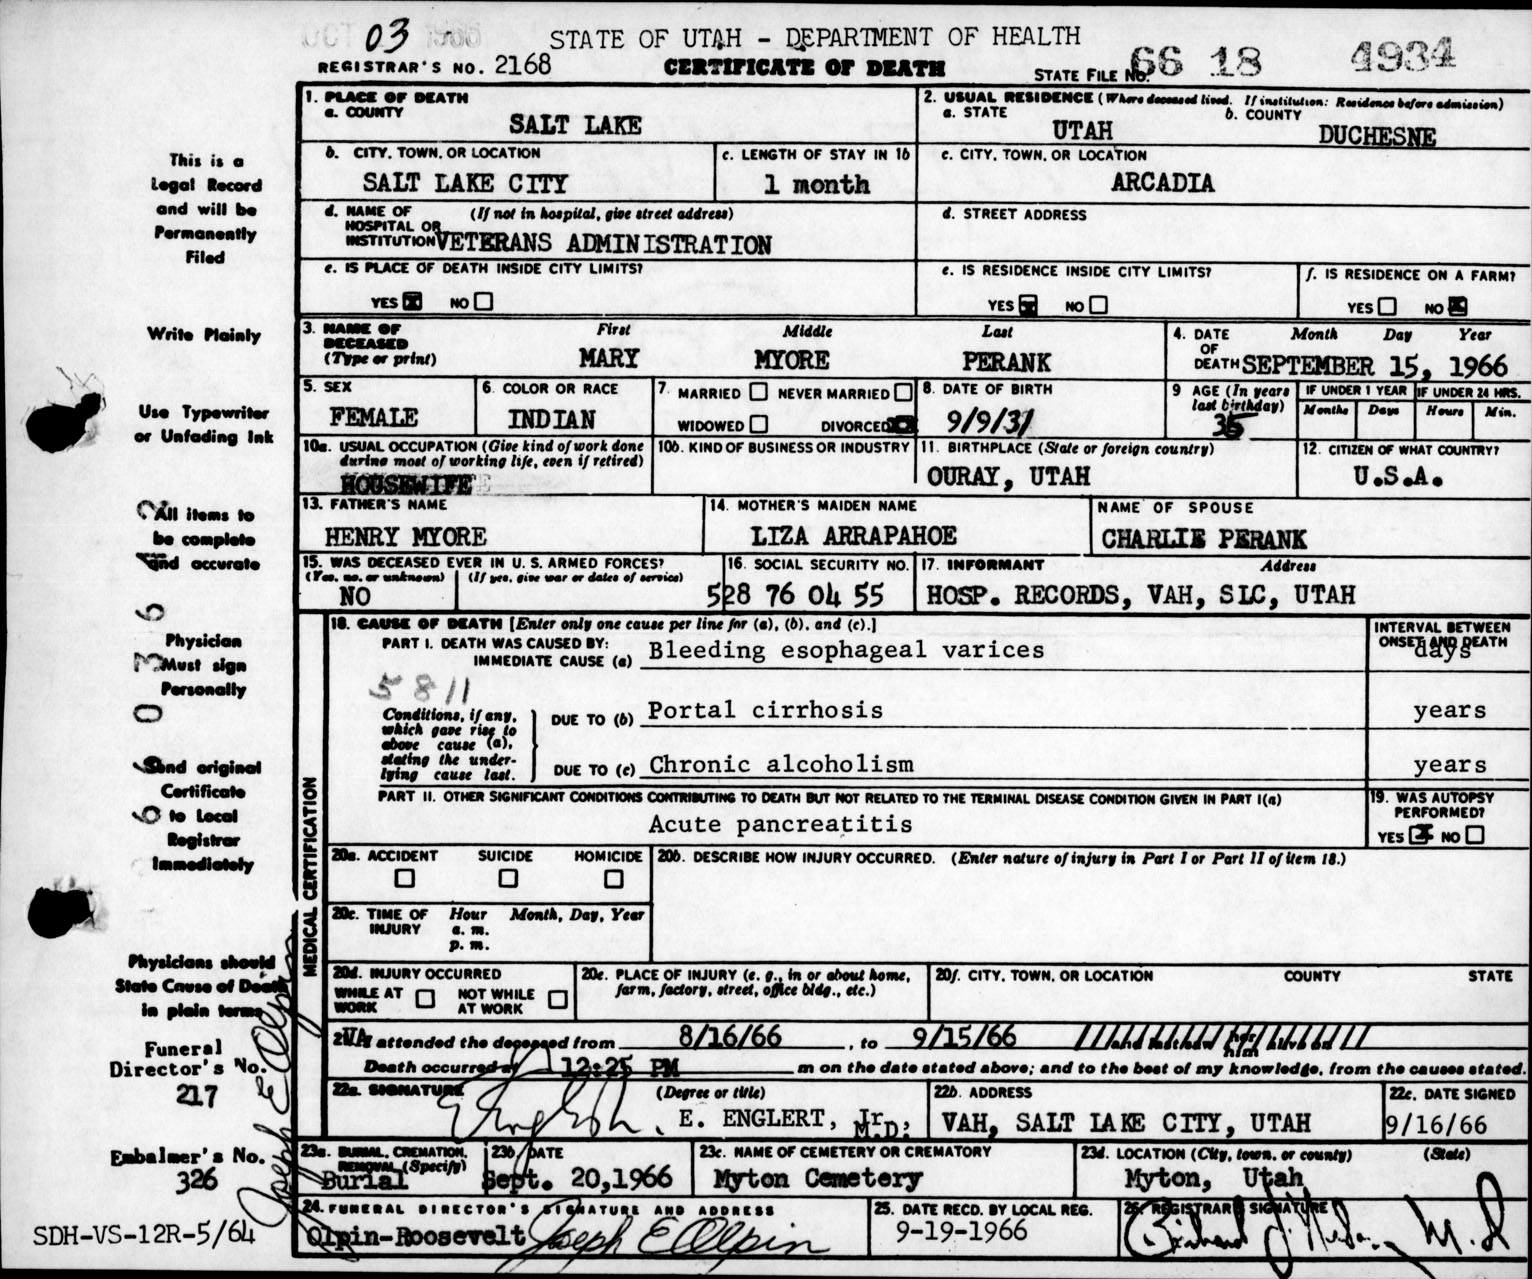 03
STATE OF UTAH - DEPARTMENT OF HEALTH
REGISTRAR'S NO. 2168
CERTIFICATE OF DEATH
STATE FILE NO. 66 18 4934
This is a
Legal Record
and will be
Permanently
Filed
Write Plainly
Use Typewriter
or Unfading Ink
All items to
be complete
and accurate
Physician
Must sign
Personally
Send original
Certificate
to Local
Registrar
Immediately
Physicians should
State Cause of Death
in plain terms
Funeral
Director's No.
217
Embalmer's No.
326
Joseph E Olpin
SDH-VS-12R-5/64
1. PLACE OF DEATH
a. COUNTY
SALT LAKE
2. USUAL RESIDENCE (Where deceased lived. If institution: Residence before admission)
a. STATE b. COUNTY
UTAH DUCHESNE
b. CITY, TOWN, OR LOCATION
SALT LAKE CITY
c. LENGTH OF STAY IN 1b
1 month
c. CITY, TOWN, OR LOCATION
ARCADIA
d. NAME OF (If not in hospital, give street address)
HOSPITAL OR
INSTITUTION VETERANS ADMINISTRATION
d. STREET ADDRESS
e. IS PLACE OF DEATH INSIDE CITY LIMITS?
YES X NO
e. IS RESIDENCE INSIDE CITY LIMITS?
YES X NO
f. IS RESIDENCE ON A FARM?
YES NO X
3. NAME OF DECEASED (Type or print)
First Middle Last
MARY MYORE PERANK
4. DATE OF DEATH Month Day Year
SEPTEMBER 15, 1966
5. SEX
FEMALE
6. COLOR OR RACE
INDIAN
7. MARRIED NEVER MARRIED
WIDOWED DIVORCED X
8. DATE OF BIRTH
9/9/31
9 AGE (In years last birthday)
35
IF UNDER 1 YEAR IF UNDER 24 HRS.
Months Days Hours Min.
10a. USUAL OCCUPATION (Give kind of work done
during most of working life, even if retired)
HOUSEWIFE
10b. KIND OF BUSINESS OR INDUSTRY
11. BIRTHPLACE (State or foreign country)
OURAY, UTAH
12. CITIZEN OF WHAT COUNTRY?
U.S.A.
13. FATHER'S NAME
HENRY MYORE
14. MOTHER'S MAIDEN NAME
LIZA ARRAPAHOE
NAME OF SPOUSE
CHARLIE PERANK
15. WAS DECEASED EVER IN U. S. ARMED FORCES?
(Yes, no, or unknown) (If yes, give war or dates of service)
NO
16. SOCIAL SECURITY NO.
528 76 04 55
17. INFORMANT Address
HOSP. RECORDS, VAH, SLC, UTAH
MEDICAL CERTIFICATION
18. CAUSE OF DEATH [Enter only one cause per line for (a), (b), and (c).]
INTERVAL BETWEEN
ONSET AND DEATH
PART I. DEATH WAS CAUSED BY:
IMMEDIATE CAUSE (a) Bleeding esophageal varices days
5811
Conditions, if any,
which gave rise to
above cause (a),
stating the under-
lying cause last.
DUE TO (b) Portal cirrhosis years
DUE TO (c) Chronic alcoholism years
PART II. OTHER SIGNIFICANT CONDITIONS CONTRIBUTING TO DEATH BUT NOT RELATED TO THE TERMINAL DISEASE CONDITION GIVEN IN PART I(a)
Acute pancreatitis
19. WAS AUTOPSY
PERFORMED?
YES X NO
20a. ACCIDENT SUICIDE HOMICIDE
20b. DESCRIBE HOW INJURY OCCURRED. (Enter nature of injury in Part I or Part II of item 18.)
20c. TIME OF INJURY Hour Month, Day, Year
a. m.
p. m.
20d. INJURY OCCURRED
WHILE AT WORK NOT WHILE AT WORK
20e. PLACE OF INJURY (e. g., in or about home,
farm, factory, street, office bldg., etc.)
20f. CITY, TOWN, OR LOCATION COUNTY STATE
21. VA attended the deceased from 8/16/66, to 9/15/66
Death occurred at 12:25 PM m on the date stated above; and to the best of my knowledge, from the causes stated.
22a. SIGNATURE (Degree or title)
E. ENGLERT, Jr. M.D.
22b. ADDRESS
VAH, SALT LAKE CITY, UTAH
22c. DATE SIGNED
9/16/66
23a. BURIAL, CREMATION,
REMOVAL (Specify)
Burial
23b. DATE
Sept. 20,1966
23c. NAME OF CEMETERY OR CREMATORY
Myton Cemetery
23d. LOCATION (City, town, or county) (State)
Myton, Utah
24. FUNERAL DIRECTOR'S SIGNATURE AND ADDRESS
Olpin-Roosevelt Joseph E Olpin
25. DATE RECD. BY LOCAL REG.
9-19-1966
26. REGISTRAR'S SIGNATURE
M.D